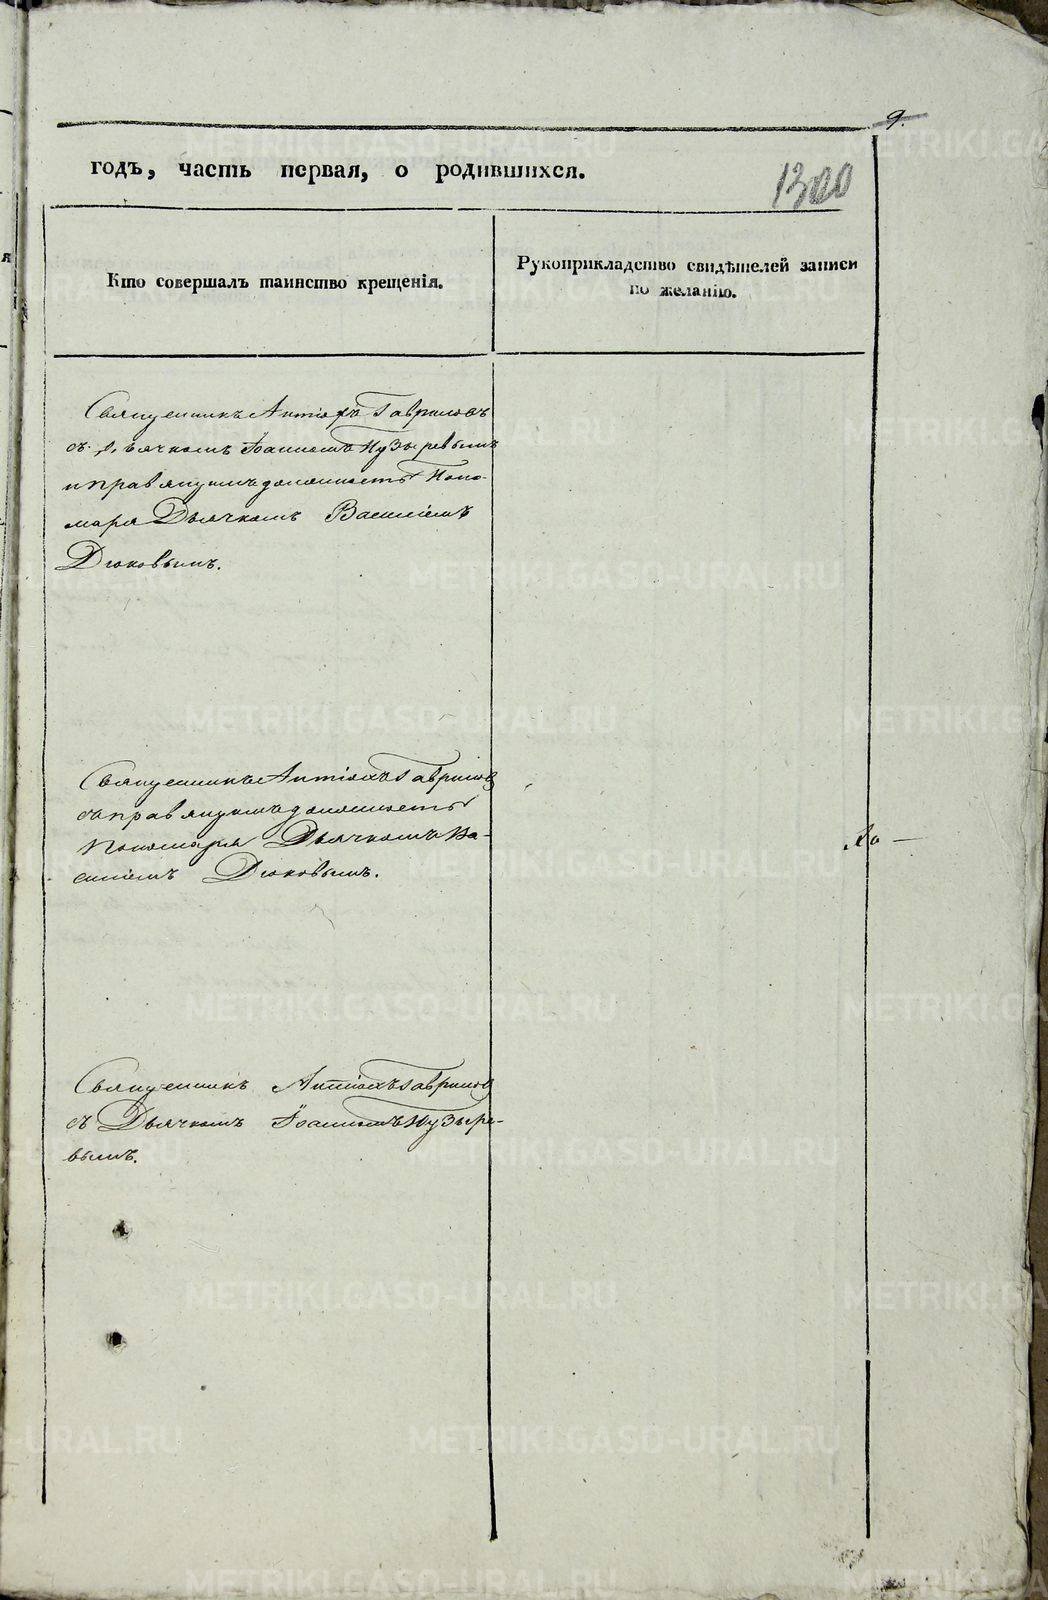 9.
годъ, часть первая, о родившихся.
1300
Кто совершалъ таинство крещенія.
Рукоприкладство свидѣтелей записи
по желанію.
Священникъ Антіохъ Гавриловъ
съ Дьячкомъ Іоанномъ Пузыревымъ
и правящимъ должность Поно-
маря Дьячкомъ Василіемъ
Дюковымъ.
Священникъ Антіохъ Гаврилов
съ правящимъ должность
Пономаря Дьячкомъ Ва-
силіемъ Дюковымъ.
Священникъ Антіохъ Гаврилов
съ Дьячкомъ Іоанномъ Пузыре-
вымъ.
METRIKI.GASO-URAL.RU